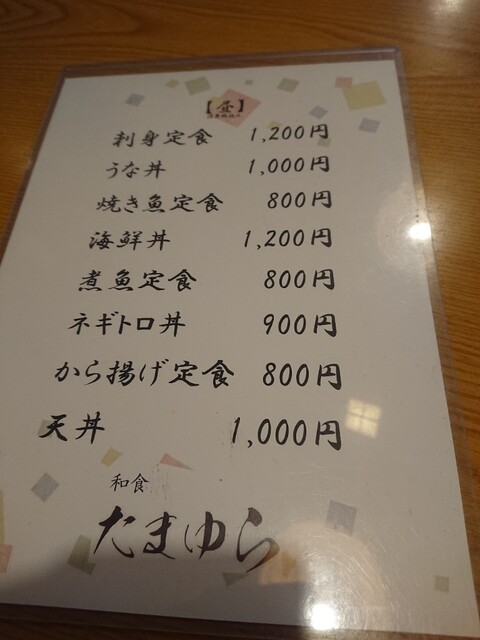 【昼】
刺身定食 1,200円
うな丼 1,000円
焼き魚定食 800円
海鮮丼 1,200円
煮魚定食 800円
ネギトロ丼 900円
から揚げ定食 800円
天丼 1,000円
和食
たまゆら